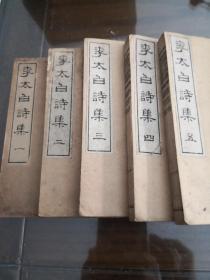 李太白詩集 一
李太白詩集 二
李太白詩集 三
李太白詩集 四
李太白詩集 五